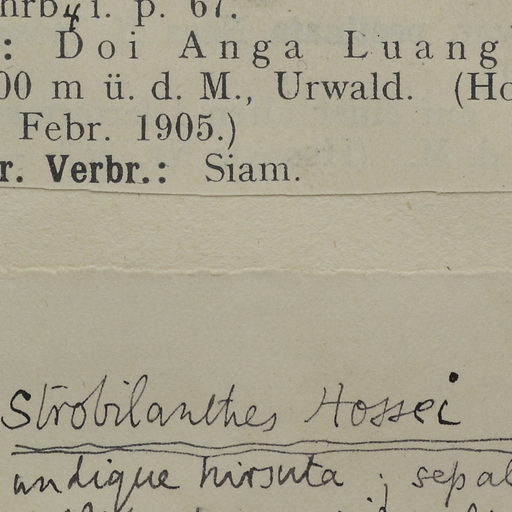 i. p. 67.
: Doi Anga Luang
00 m ü. d. M., Urwald. (Ho
Febr. 1905.)
r. Verbr.: Siam.
Strobilanthes Hossei
undique hirsuta ; sepal